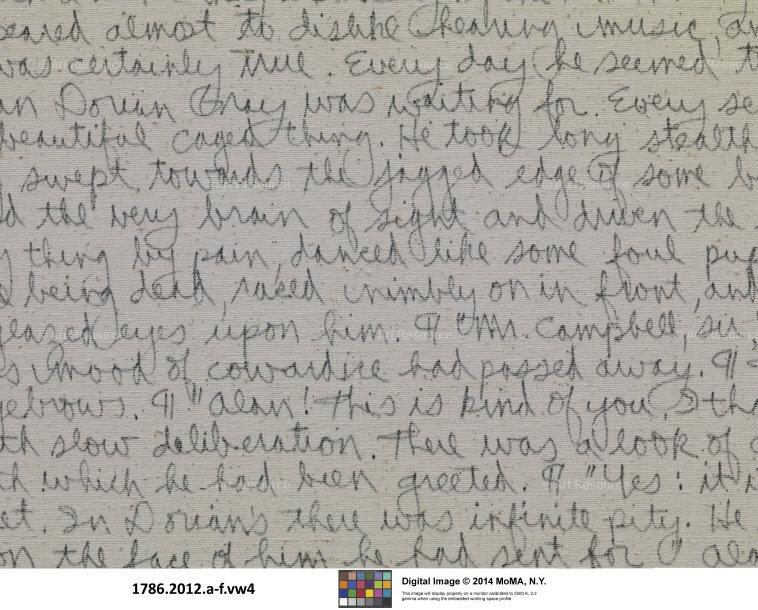 peared almost to dislike hearing music, an
was certainly true. Every day he seemed t
an Dorian Gray was waiting for. Every se
beautiful caged thing. He took long stealth
swept towards the jagged edge of some b
d the very brain of sight and driven the
thing by pain, danced like some foul pup
being dead, raced nimbly on in front, and
glazed eyes upon him. ¶ "Mr. Campbell, sir,
s mood of cowardice had passed away. ¶
yebrows. ¶ "Alan! This is kind of you. I tha
th slow deliberation. There was a look of
th which he had been greeted. ¶ "Yes: it i
et. In Dorian's there was infinite pity. He
on the face of him he had sent for
1786.2012.a-f.vw4
Digital Image © 2014 MoMA, N.Y.
This image will display properly on a monitor calibrated to 5500 K, 2.2
gamma when using the embedded working space profile